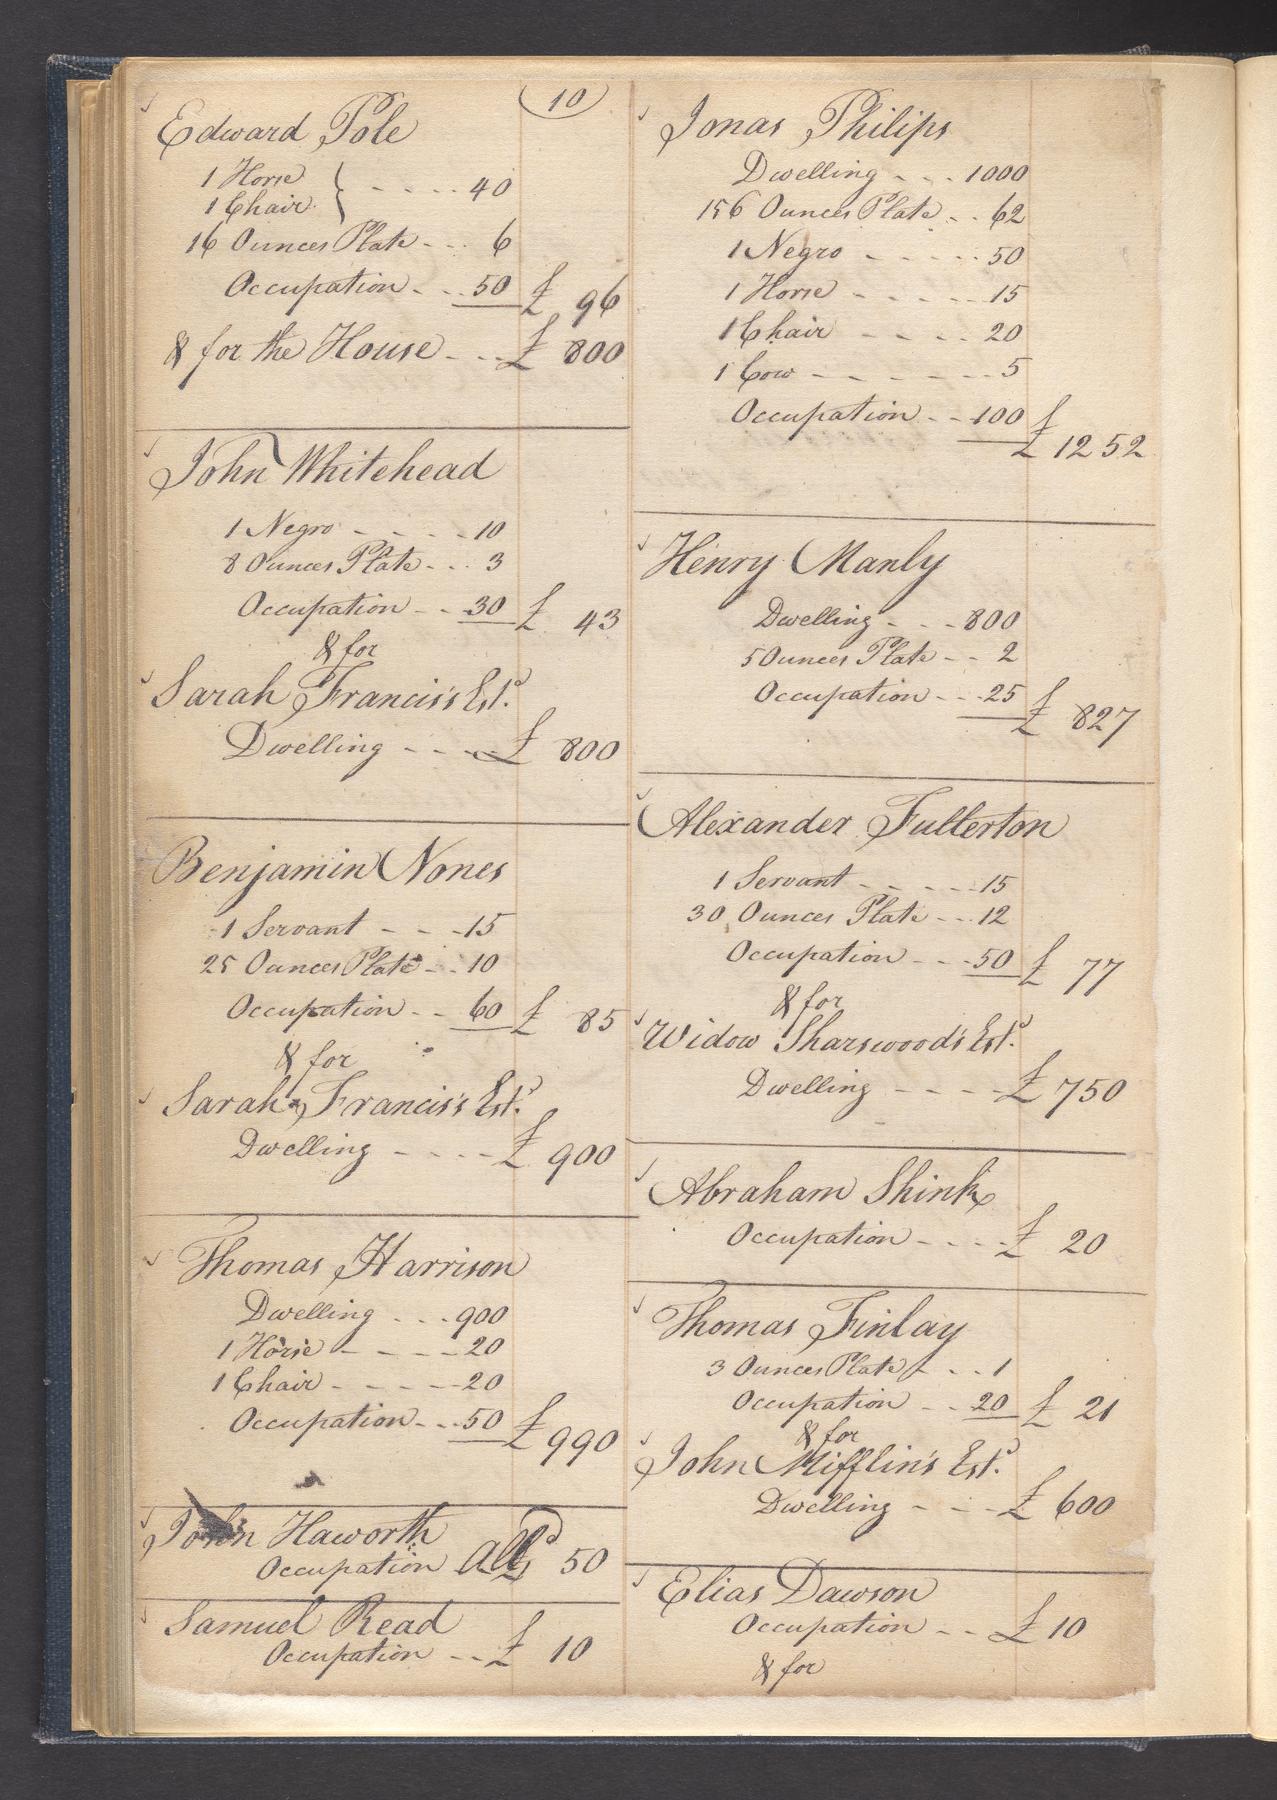 10
Edward Pole
1 Horse
1 Chair } - - - - 40
16 Ounces Plate - - - 6
Occupation - - - 50 £ 96
& for the House - - - £ 800
John Whitehead
1 Negro - - - - 10
8 Ounces Plate - - - 3
Occupation - - - 30 £ 43
& for
Sarah Francis's Estd.
Dwelling - - - - £ 800
Benjamin Nones
1 Servant - - - 15
25 Ounces Plate - - - 10
Occupation - - 60 £ 85
& for
Sarah Francis's Estd.
Dwelling - - - - £ 900
Thomas Harrison
Dwelling - - - 900
1 Horse - - - - 20
1 Chair - - - - 20
Occupation - - - 50 £ 990
John Haworth
Occupation £ 50
Samuel Read
Occupation - - £ 10
Jonas Philips
Dwelling - - - 1000
156 Ounces Plate - - 62
1 Negro - - - - - 50
1 Horse - - - - - 15
1 Chair - - - - 20
1 Cow - - - - - - 5
Occupation - - 100 £ 1252
Henry Manly
Dwelling - - - 800
5 Ounces Plate - - 2
Occupation - - - 25 £ 827
Alexander Fullerton
1 Servant - - - - 15
30 Ounces Plate - - - 12
Occupation - - - 50 £ 77
& for
Widow Sharswood's Estd.
Dwelling - - - - £ 750
Abraham Shink
Occupation - - - - £ 20
Thomas Finlay
3 Ounces Plate - - - 1
Occupation - - 20 £ 21
& for
John Mifflin's Estd.
Dwelling - - - £ 600
Elias Dawson
Occupation - - £ 10
& for